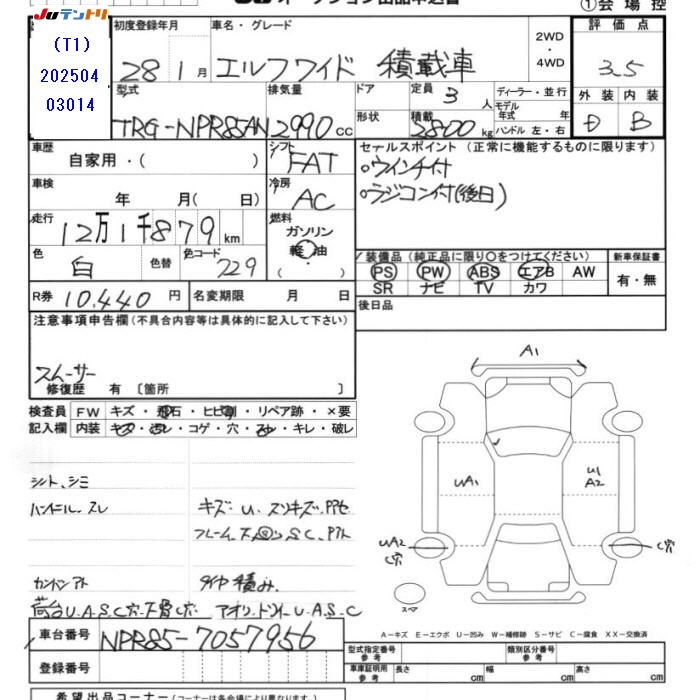 オークション出品申込書
①会場控
JUテントリ
(T1)
202504
03014
初度登録年月
28年1月
車名・グレード
エルフワイド 積載車
2WD
・
4WD
評価点
3.5
外装 内装
D B
型式
TRG-NPR85AN
排気量
2990cc
ドア
定員 3人
形状
積載 2800kg
ディーラー・並行
モデル
年式 年
ハンドル 左・右
車歴
自家用・( )
シフト
FAT
セールスポイント (正常に機能するものに限ります)
○ウインチ付
○ラジコン付(後日)
車検
年 月( 日)
冷房
AC
走行
12万1千879km
燃料
ガソリン
軽油
( ・ )
色
白
色替
色コード
229
装備品 (純正品に限り○をつけてください)
PS PW ABS エアB AW
SR ナビ TV カワ
新車保証書
有・無
R券 10,440円
名変期限 月 日
後日品
注意事項申告欄(不具合内容等は具体的に記入して下さい)
スムーサー
修復歴 有 〔箇所 〕
検査員
記入欄
FW キズ・飛石・ヒビ割・リペア跡・×要
内装 キズ・汚レ・コゲ・穴・スレ・キレ・破レ
シート、シミ
ハンドル、スレ
キズ・U、スリキズ、アセ
カントンアト
タイヤ積み、
アオリ、トリイU・A・S・C
A1
UA1
U1
A2
UA2
C穴
C穴
スペア
A－キズ E－エクボ U－凹み W－補修跡 S－サビ C－腐食 XX－交換済
車台番号 NPR85-7057956
登録番号
型式指定番号
参考
類別区分番号
参考
車庫証明用
参考
長さ cm
幅 cm
高さ cm
希望出品コーナー(コーナーは各会場により異なります。)